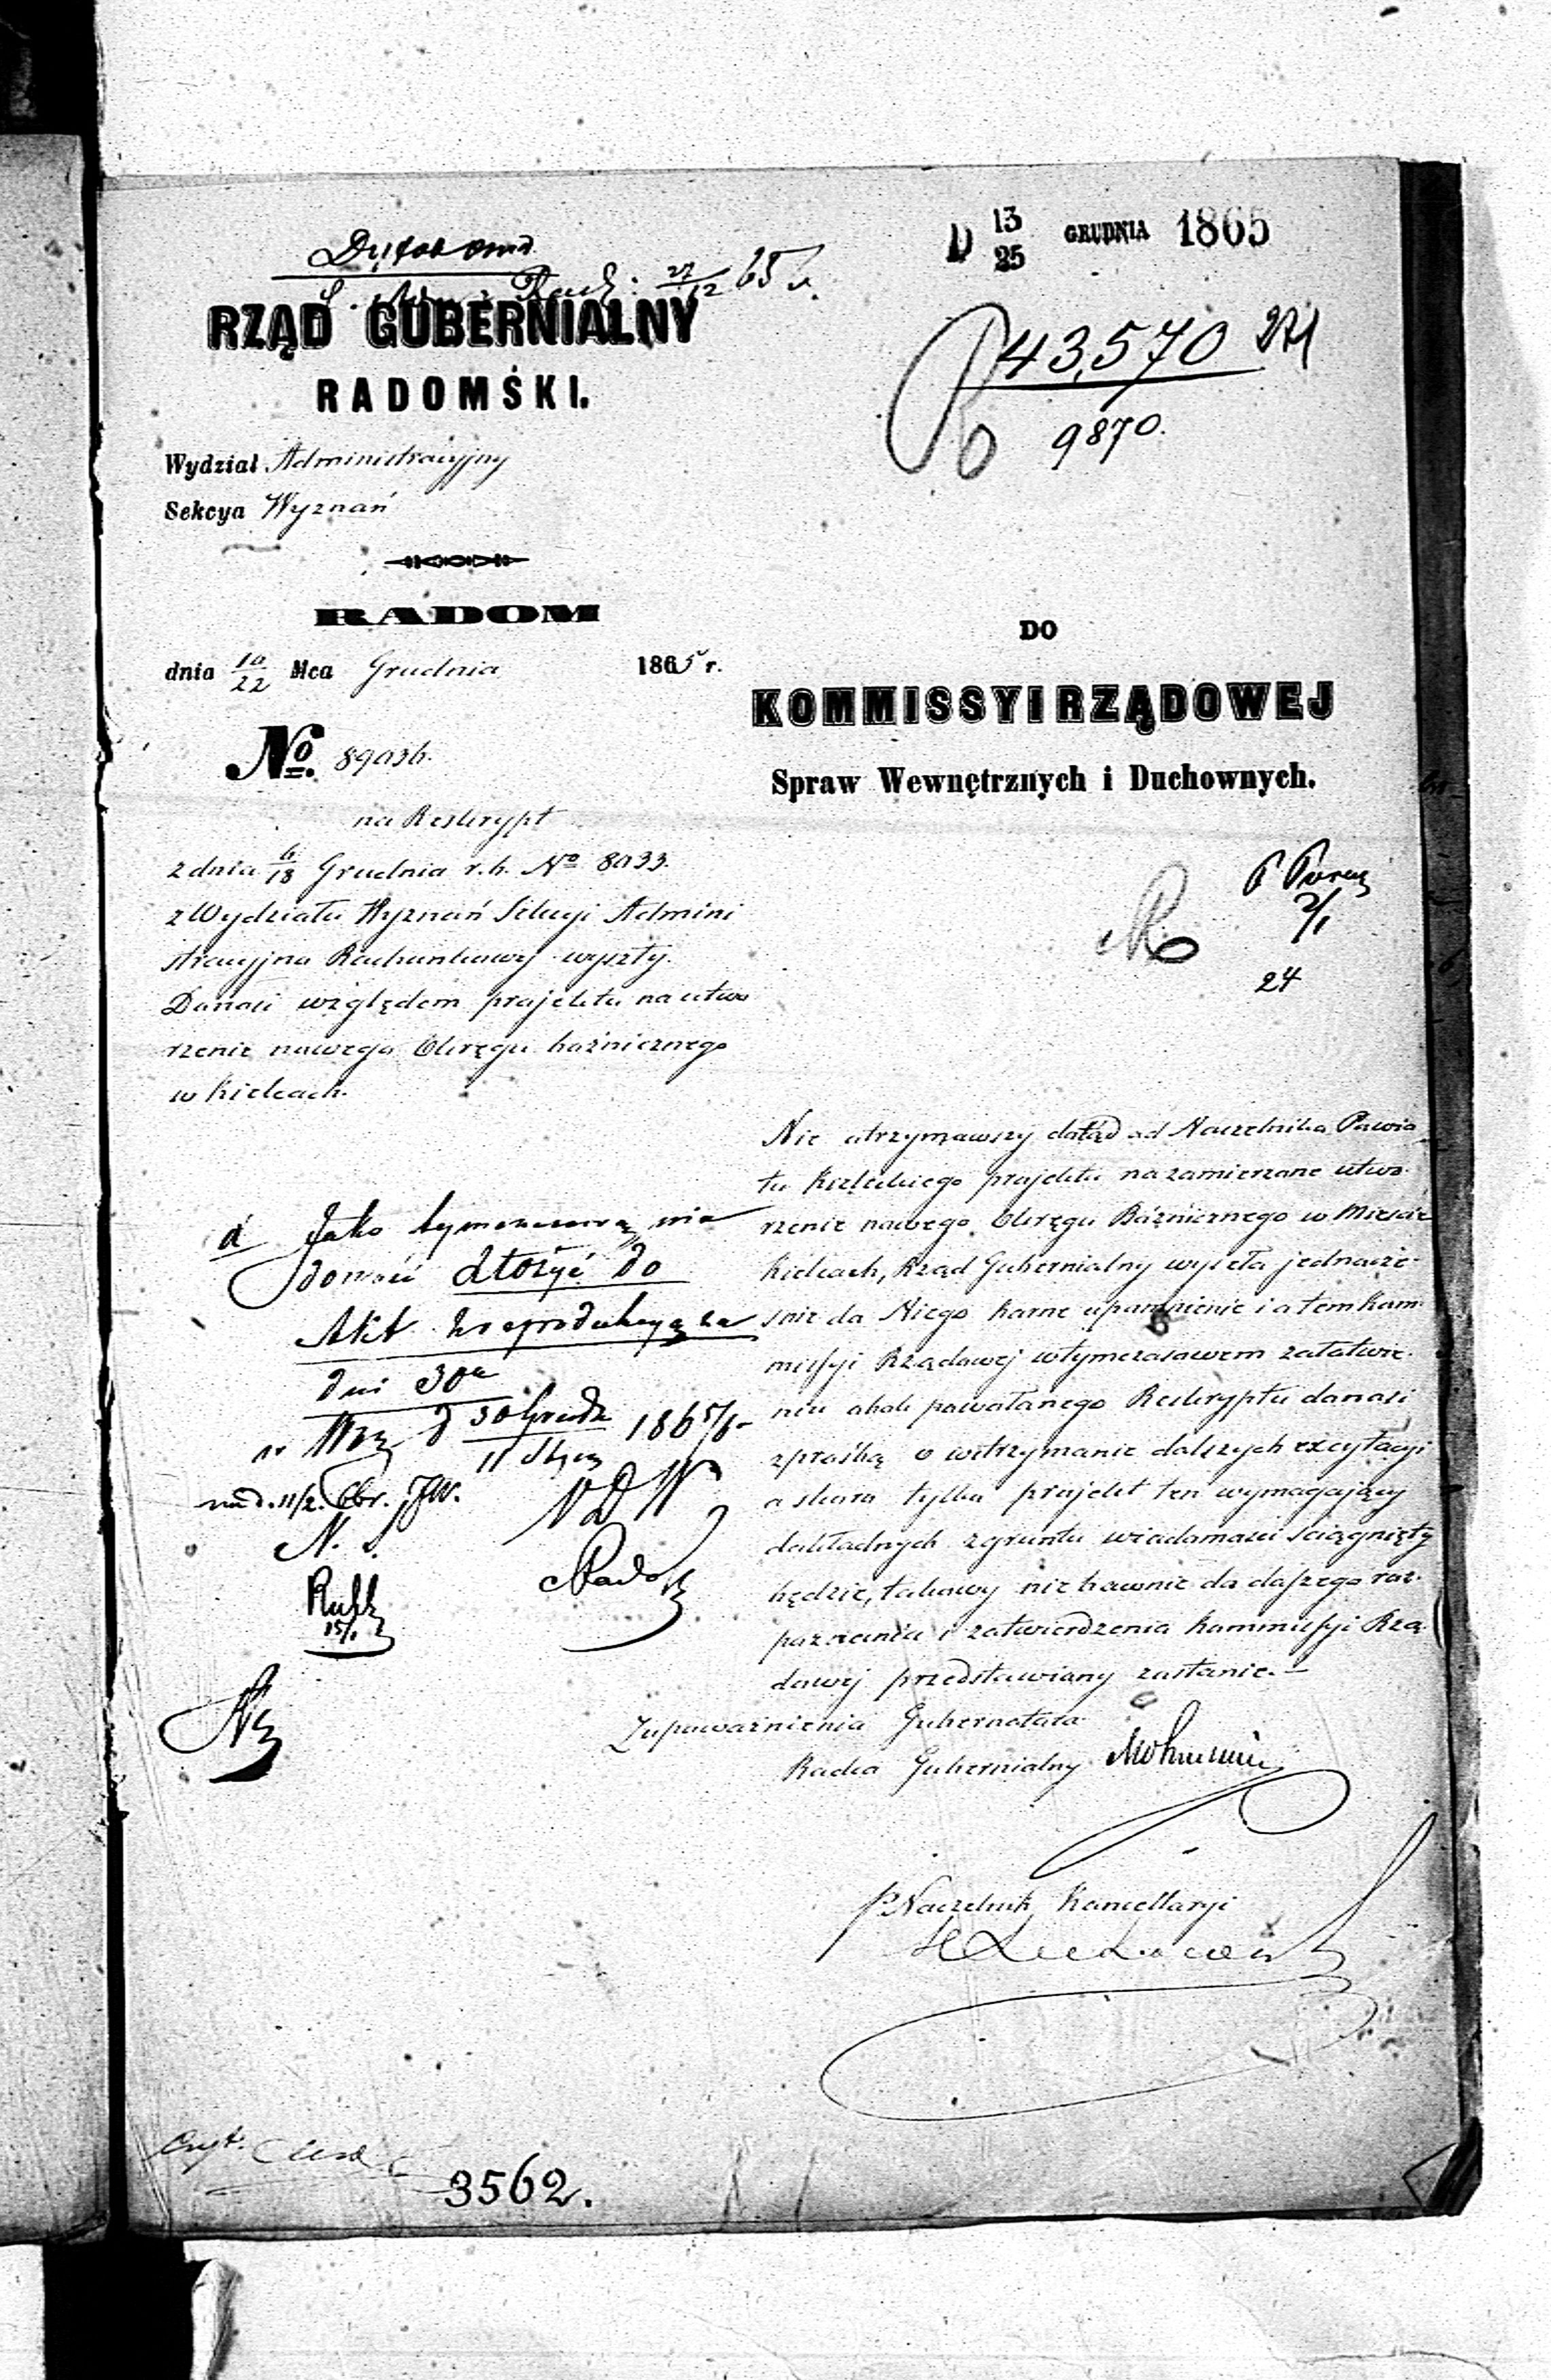 D 13/25 GRUDNIA 1865
27/12 65 r.
RZĄD GUBERNIALNY
RADOMSKI.
43,570
9870.
Wydział Administracyjny
Sekcya Wyznań
RADOM
dnia 10/22 Mca Grudnia 1865 r.
No. 89036.
na Reskrypt
z dnia 6/18 Grudnia r. b. No 8033.
z Wydziału Wyznań Sekcyi Admini
stracyjno Rachunkowej wyszły.
Donosi względem projektu na utwo
rzenie nowego Okręgu bóźnicznego
w Kielcach.
DO
KOMMISSYI RZĄDOWEJ
Spraw Wewnętrznych i Duchownych.
2/1
24
Nie otrzymawszy dotąd od Naczelnika Powia
tu Kieleckiego projektu na zamierzone utwo
rzenie nowego Okręgu Bóźnicznego w Mieście
Kielcach, Rząd Gubernialny wysyła jednocze
śnie do Niego karne upomnienie i o tem Kom
missyi Rządowej w tymczasowem załatwie
niu obok powołanego Reskryptu donosi
z prośbą o wstrzymanie dalszych excytacyi
a skoro tylko projekt ten wymagający
dokładnych z gruntu wiadomości ściągnięty
będzie, takowy niebawnie do dalszego roz
poznania i zatwierdzenia Kommissyi Rzą
dowej przedstawiony zostanie.—
Z upoważnienia Gubernatora
Radca Gubernialny
p. Naczelnik Kancellaryi
d Jako tymczasową wia
domość złożyć do
Akt z reprodukcyą za
dni 30
w Wa d 30 Grud 1865/6
11 Stycz
N D W
N. S.
15/1
3562.